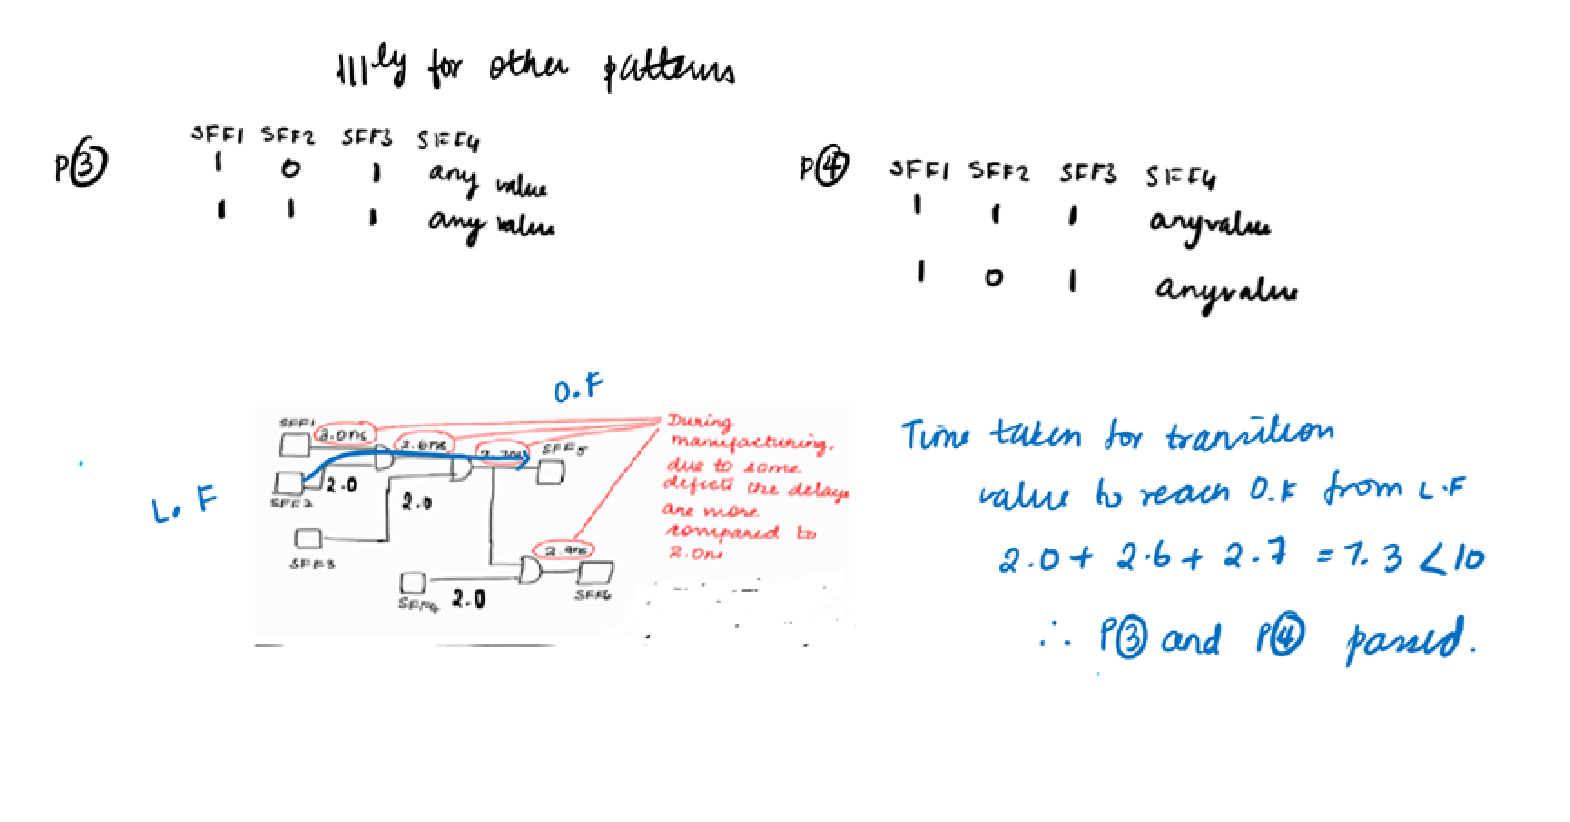 lllly for other patterns
P③
SFF1 SFF2 SFF3 SFF4
1 0 1 any value
1 1 1 any value
P④
SFF1 SFF2 SFF3 SFF4
1 1 1 anyvalue
1 0 1 anyvalue
O.F
L.F
SFF1
3.0ns
2.6ns
2.7ns
SFF5
SFF2
2.0
2.0
SFF3
2.9ns
SFF4
2.0
SFF6
During
manufacturing,
due to some
defects the delays
are more
compared to
2.0ns
Time taken for transition
value to reach O.F from L.F
2.0 + 2.6 + 2.7 = 7.3 < 10
∴ P③ and P④ passed.